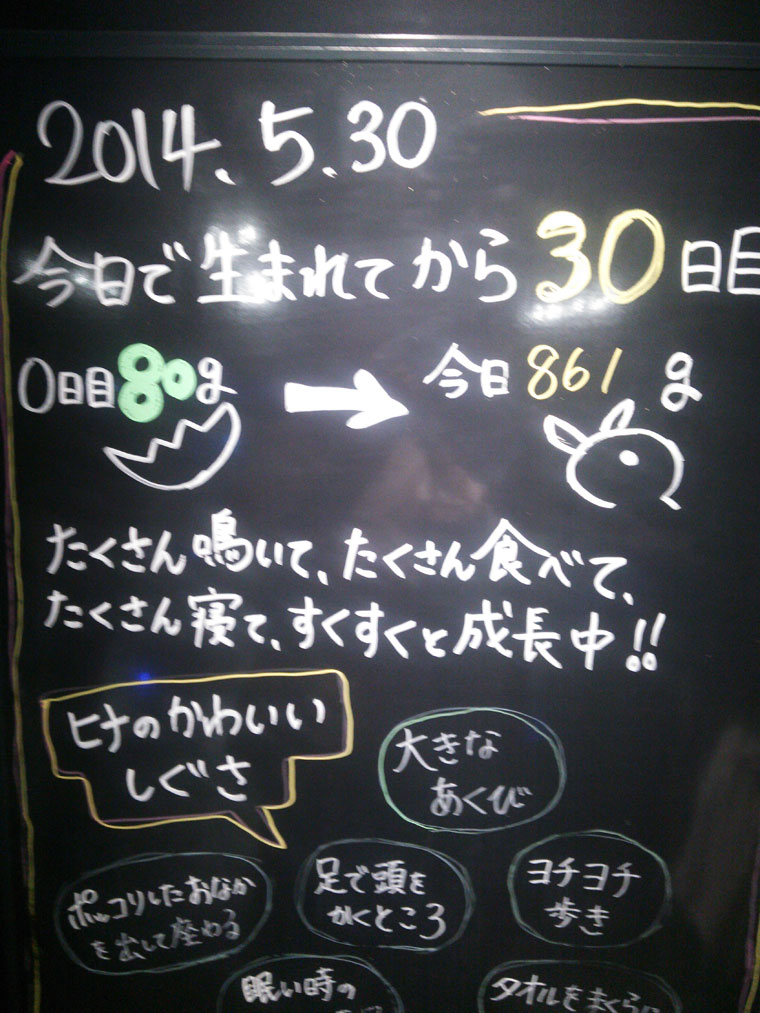 2014.5.30
今日で生まれてから30日目
0日目80g
今日861g
たくさん鳴いて、たくさん食べて、
たくさん寝て、すくすくと成長中!!
ヒナのかわいい
しぐさ
大きな
あくび
ポッコリしたおなか
を出して座わる
足で頭を
かくところ
ヨチヨチ
歩き
眠い時の
タオルをまくら